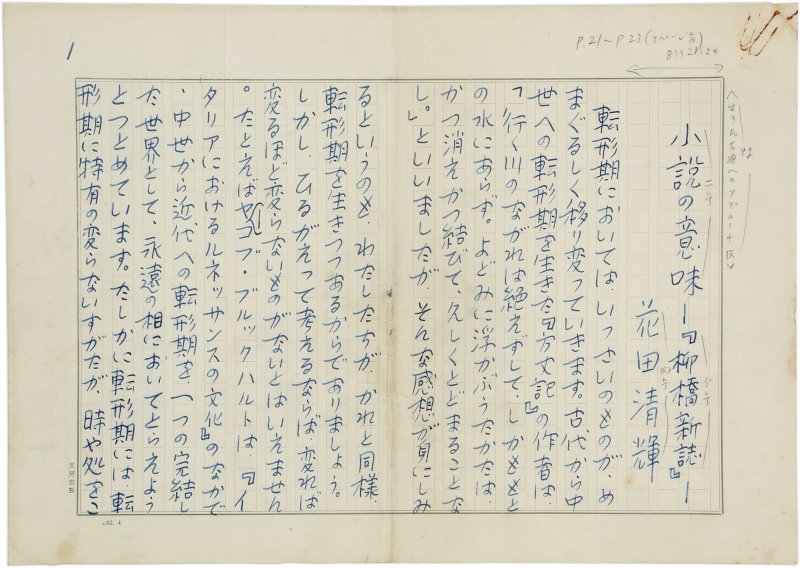 1
P.21〜P.23(3ページ分)
小説の意味—『柳橋新誌』—
花田清輝
転形期においては、いっさいのものが、め
まぐるしく移り変っていきます。古代から中
世への転形期を生きた『方丈記』の作者は、
「行く川のながれは絶えずして、しかももと
の水にあらず。よどみに浮かぶうたかたは、
かつ消えかつ結びて、久しくとどまることな
し。」といいましたが、そんな感想が身にしみ
るというのも、わたしたちが、かれと同様、
転形期を生きつつあるからでありましょう。
しかし、ひるがえって考えるならば、変れば
変るほど変らないものがないとはいえません
。たとえばヤコブ・ブルックハルトは、『イ
タリアにおけるルネッサンスの文化』のなかで
、中世から近代への転形期を、一つの完結し
た世界として、永遠の相においてとらえよう
とつとめています。たしかに転形期には、転
形期に特有の変らないすがたが、時や処をこ
No. 6